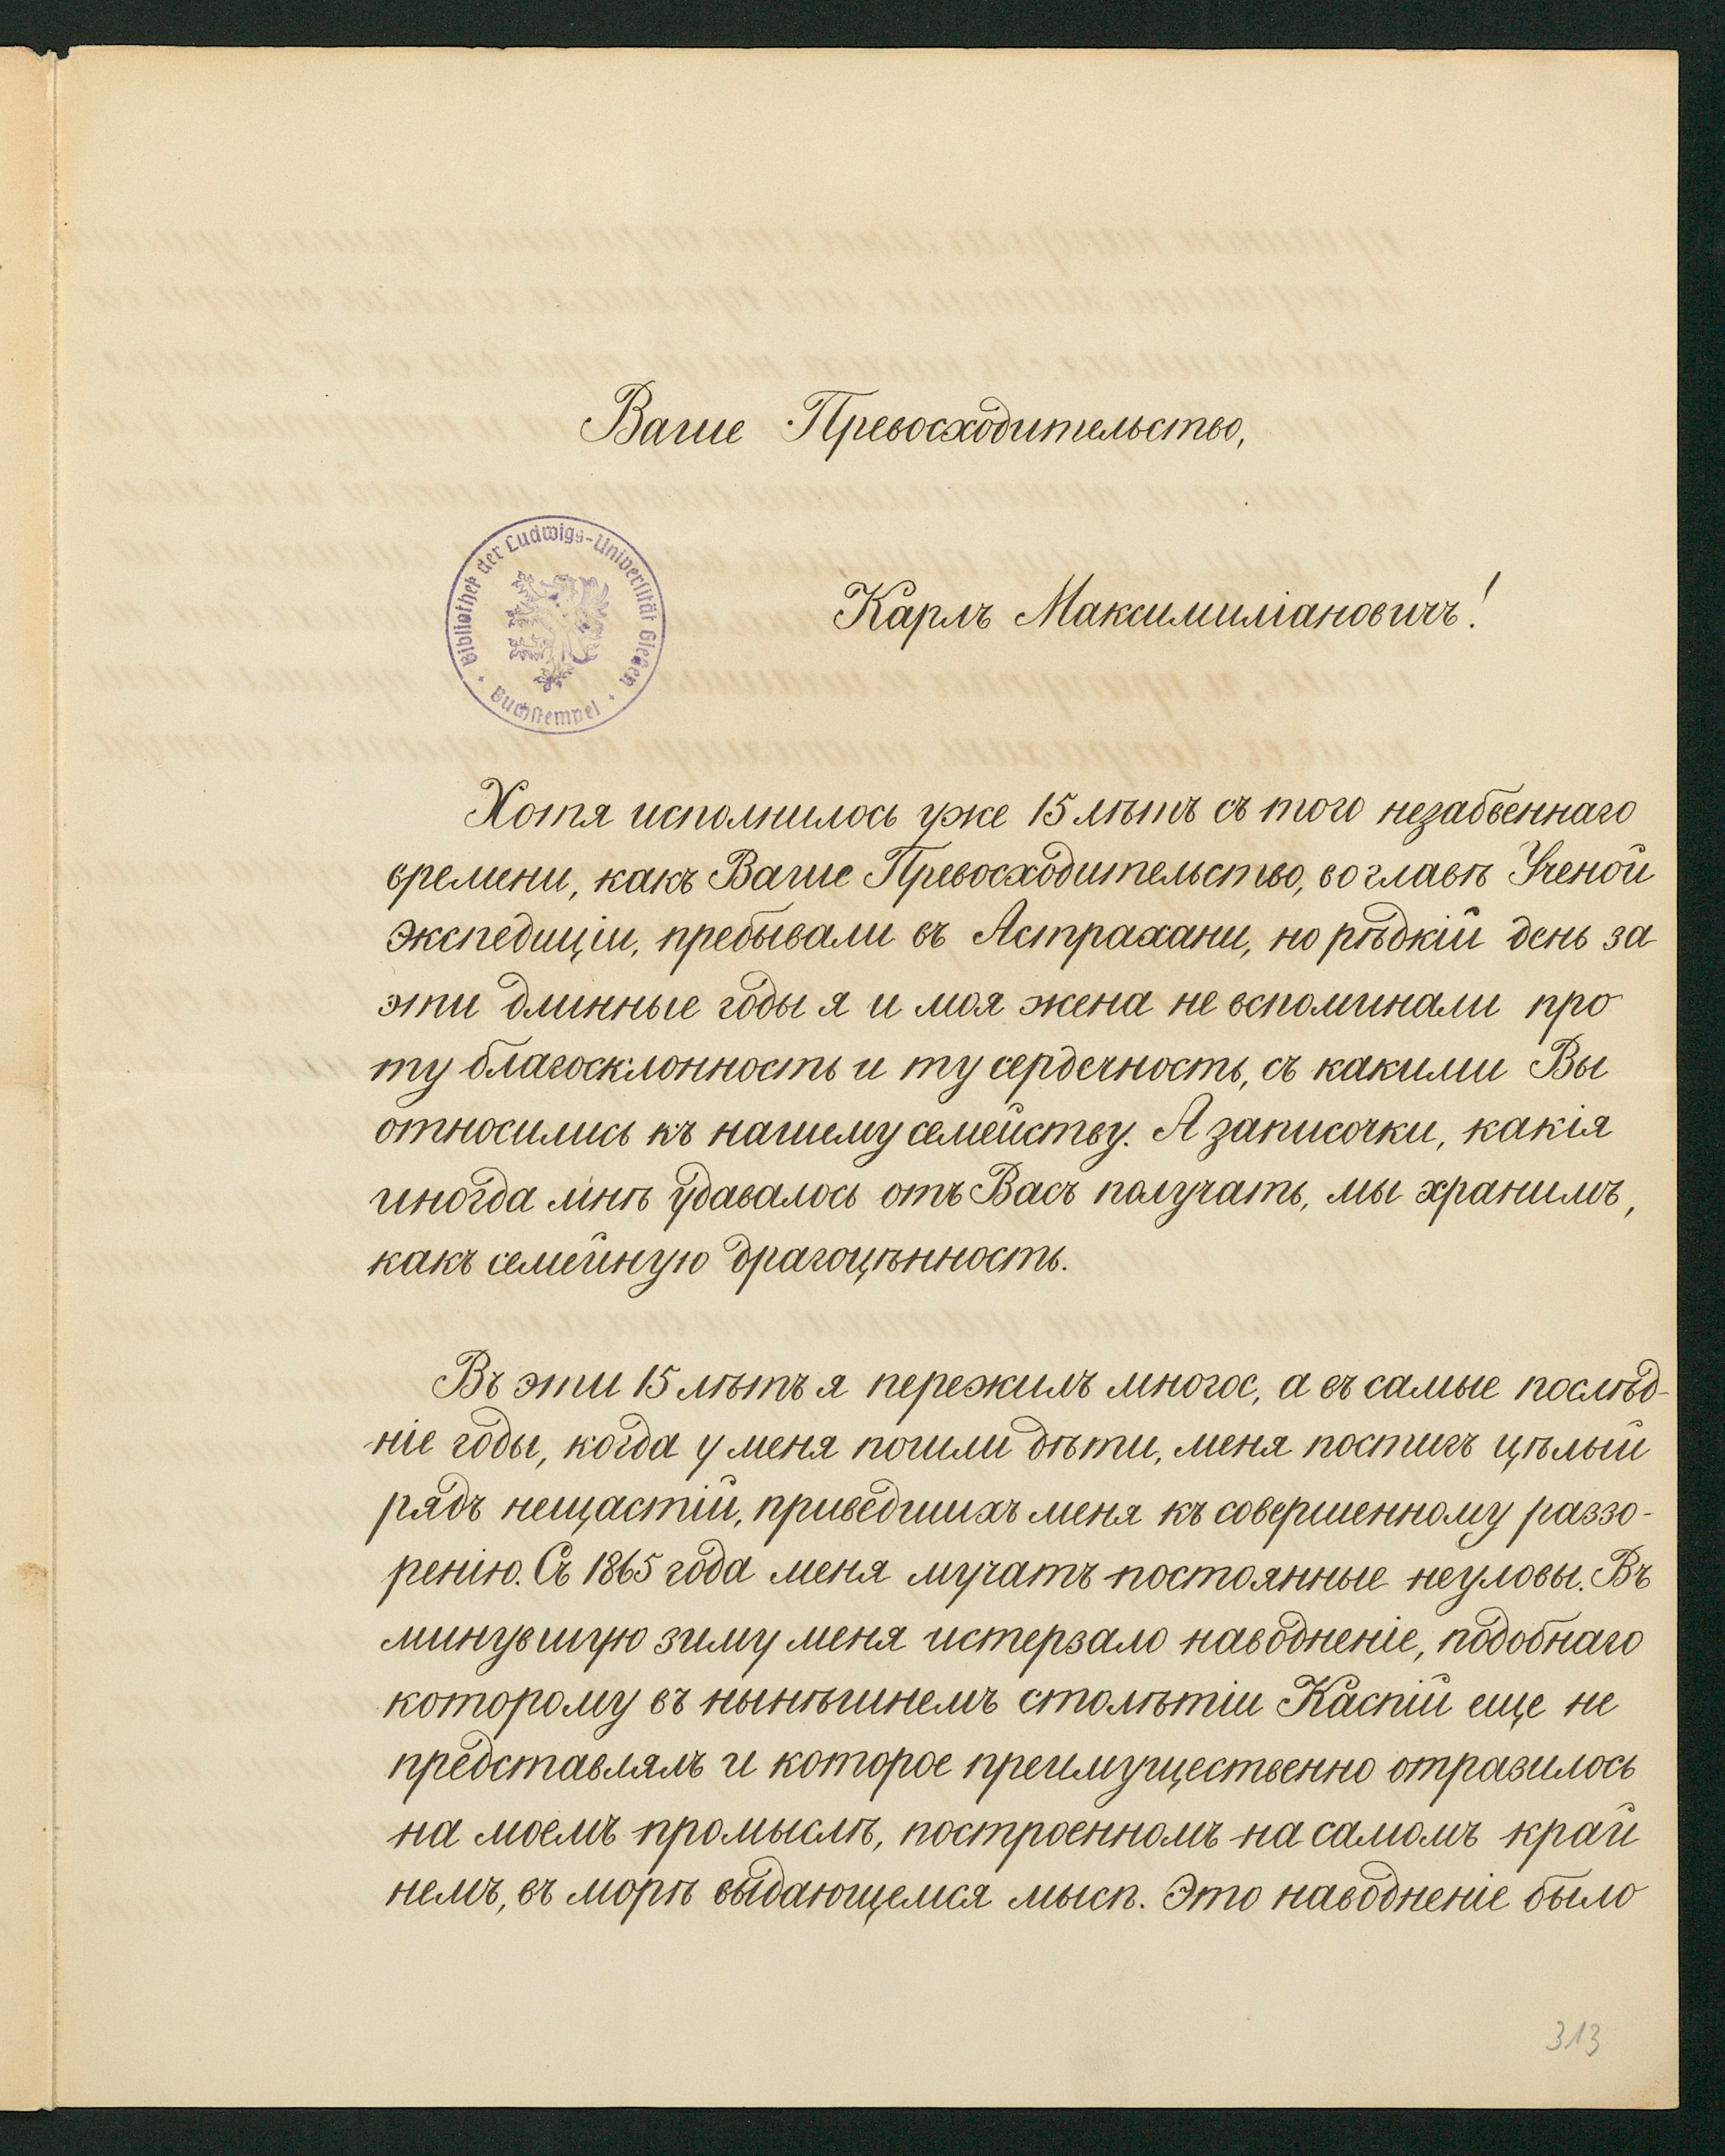 Ваше Превосходительство,
Bibliothek der Ludwigs-Universität Gießen
Buchstempel
Карлъ Максимиліановичъ!
Хотя исполнилось уже 15 лѣтъ съ того незабвеннаго
времени, какъ Ваше Превосходительство, во главѣ Ученой
Экспедиціи, пребывали въ Астрахани, но рѣдкій день за
эти длинные годы я и моя жена не вспоминали про
ту благосклонность и ту сердечность, съ какими Вы
относились къ нашему семейству. А записочки, какія
иногда мнѣ удавалось отъ Васъ получать, мы хранимъ,
какъ семейную драгоцѣнность.
Въ эти 15 лѣтъ я пережилъ многое, а въ самые послѣд-
ніе годы, когда у меня пошли дѣти, меня постигъ цѣлый
рядъ нещастій, приведшихъ меня къ совершенному раззо-
ренію. Съ 1865 года меня мучатъ постоянные неуловы. Въ
минувшую зиму меня истерзало наводненіе, подобнаго
которому въ нынѣшнемъ столѣтіи Каспій еще не
представлялъ и которое преимущественно отразилось
на моемъ промыслѣ, построенномъ на самомъ край
немъ, въ морѣ выдающемся мысѣ. Это наводненіе было
313